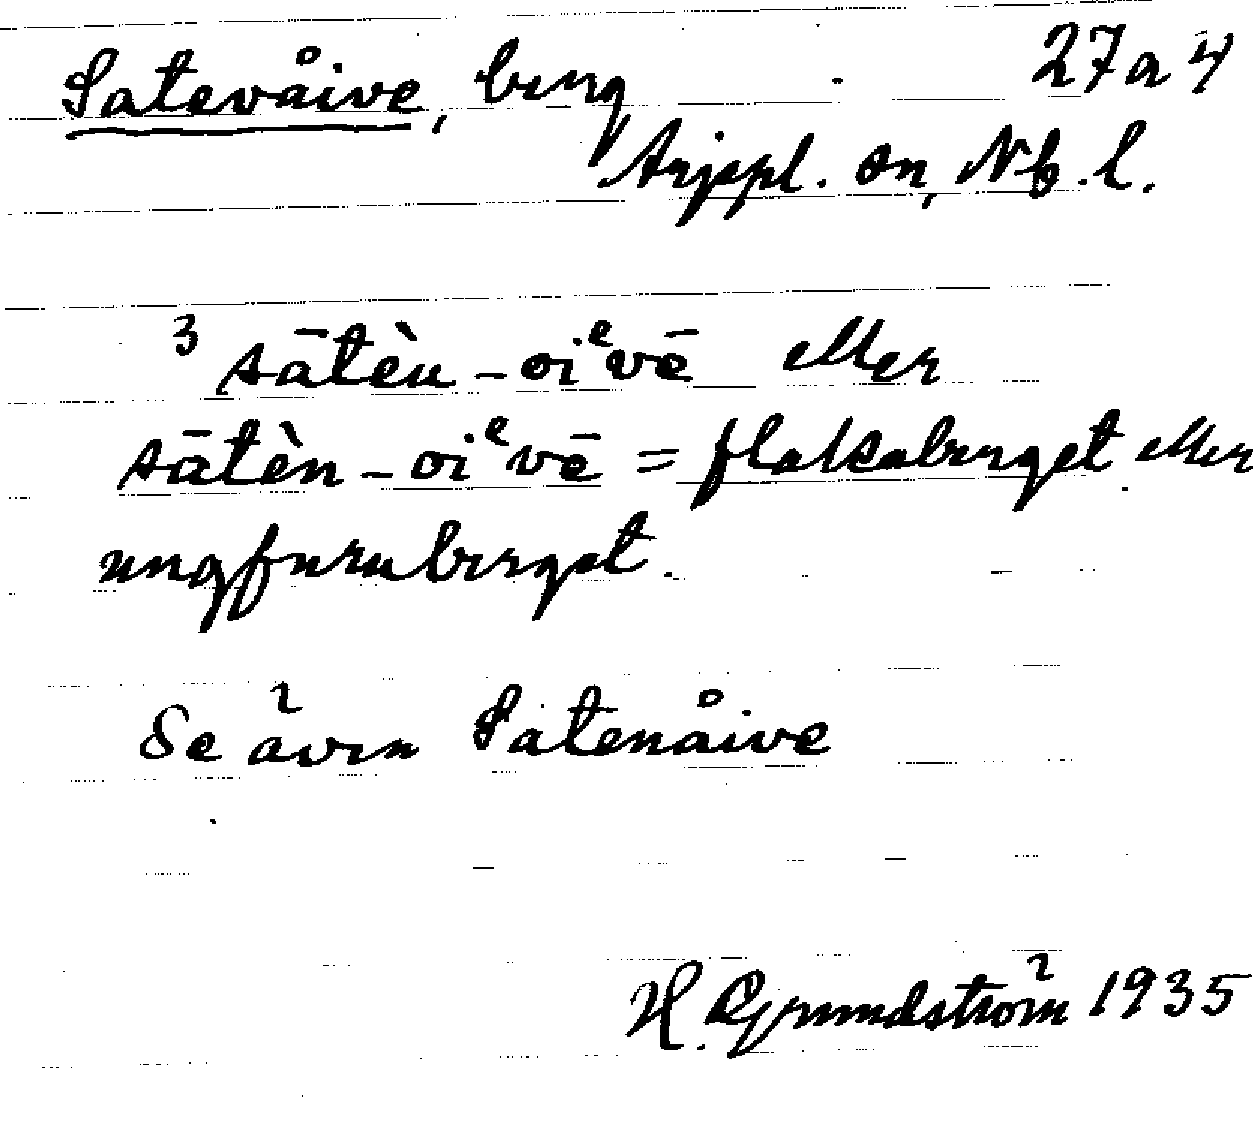 Satevåive, berg 27a4
Arjepl. sn, Nb. l.
³ sātèu-oiᵉvē eller
sātèn-oiᵉvē = flakaberget eller
ungfuruberget.
Se även Satenåive
H. Grundström 1935